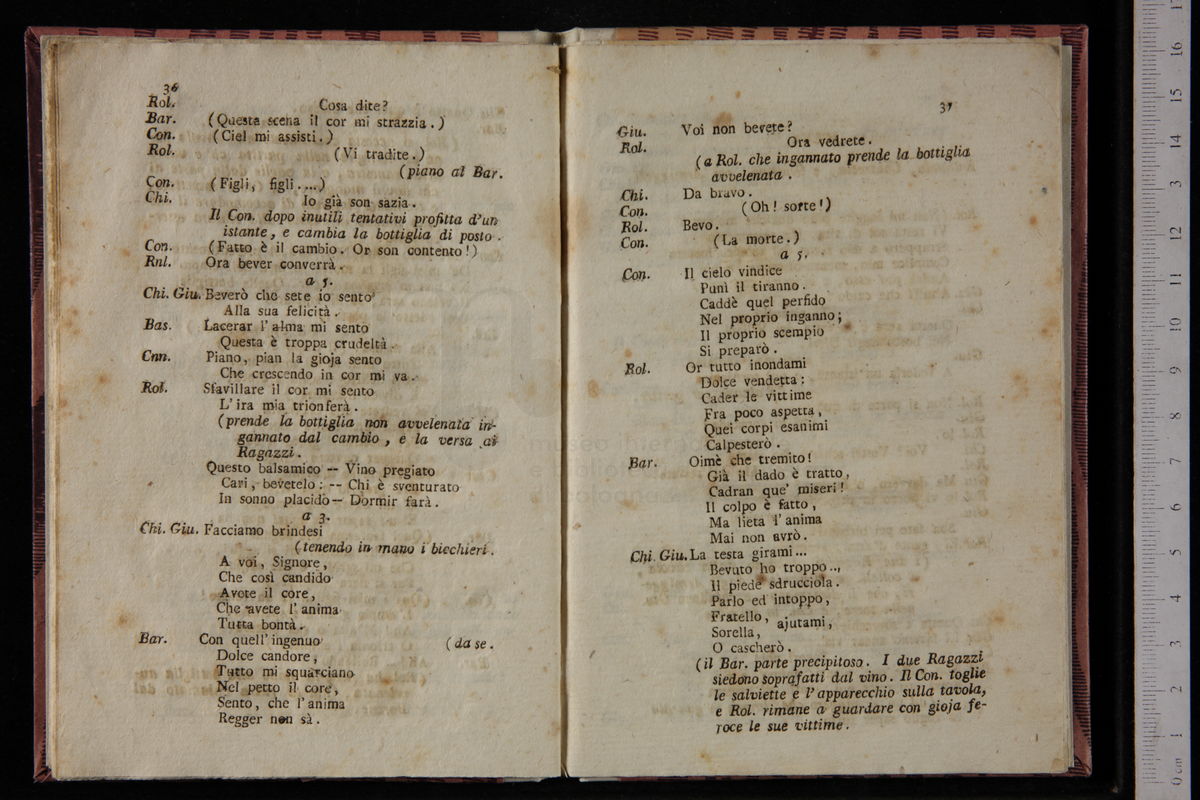 36
Rol. Cosa dite?
Bar. (Questa scena il cor mi strazzia.)
Con. (Ciel mi assisti.)
Rol. (Vi tradite.)
(piano al Bar.
Con. (Figli, figli....)
Chi. Io già son sazia.
Il Con. dopo inutili tentativi profitta d'un
istante, e cambia la bottiglia di posto.
Con. (Fatto è il cambio. Or son contento!)
Rnl. Ora bever converrà.
a 5.
Chi. Giu. Beverò che sete io sento
Alla sua felicità.
Bas. Lacerar l'alma mi sento
Questa è troppa crudeltà.
Cnn. Piano, pian la gioja sento
Che crescendo in cor mi va.
Rol. Sfavillare il cor mi sento
L'ira mia trionferà.
(prende la bottiglia non avvelenata in-
gannato dal cambio, e la versa ai
Ragazzi.
Questo balsamico -- Vino pregiato
Cari, bevetelo: -- Chi è sventurato
In sonno placido -- Dormir farà.
a 3.
Chi. Giu. Facciamo brindesi
(tenendo in mano i bicchieri.
A voi, Signore,
Che così candido
Avete il core,
Che avete l'anima
Tutta bontà.
Bar. Con quell'ingenuo (da se.
Dolce candore,
Tutto mi squarciano
Nel petto il core,
Sento, che l'anima
Regger non sà.
37
Giu. Voi non bevete?
Rol. Ora vedrete.
(a Rol. che ingannato prende la bottiglia
avvelenata.
Chi. Da bravo.
Con. (Oh! sorte!)
Rol. Bevo.
Con. (La morte.)
a 5.
Con. Il cielo vindice
Punì il tiranno.
Caddè quel perfido
Nel proprio inganno;
Il proprio scempio
Si preparò.
Rol. Or tutto inondami
Dolce vendetta:
Cader le vittime
Fra poco aspetta,
Quei corpi esanimi
Calpesterò.
Bar. Oimè che tremito!
Già il dado è tratto,
Cadran que' miseri!
Il colpo è fatto,
Ma lieta l'anima
Mai non avrò.
Chi. Giu. La testa girami...
Bevuto ho troppo...
Il piede sdrucciola.
Parlo ed intoppo,
Fratello, ajutami,
Sorella,
O cascherò.
(il Bar. parte precipitoso. I due Ragazzi
siedono soprafatti dal vino. Il Con. toglie
le salviette e l'apparecchio sulla tavola,
e Rol. rimane a guardare con gioja fe-
roce le sue vittime.
0 cm 1 2 3 4 5 6 7 8 9 10 11 12 13 14 15 16 17